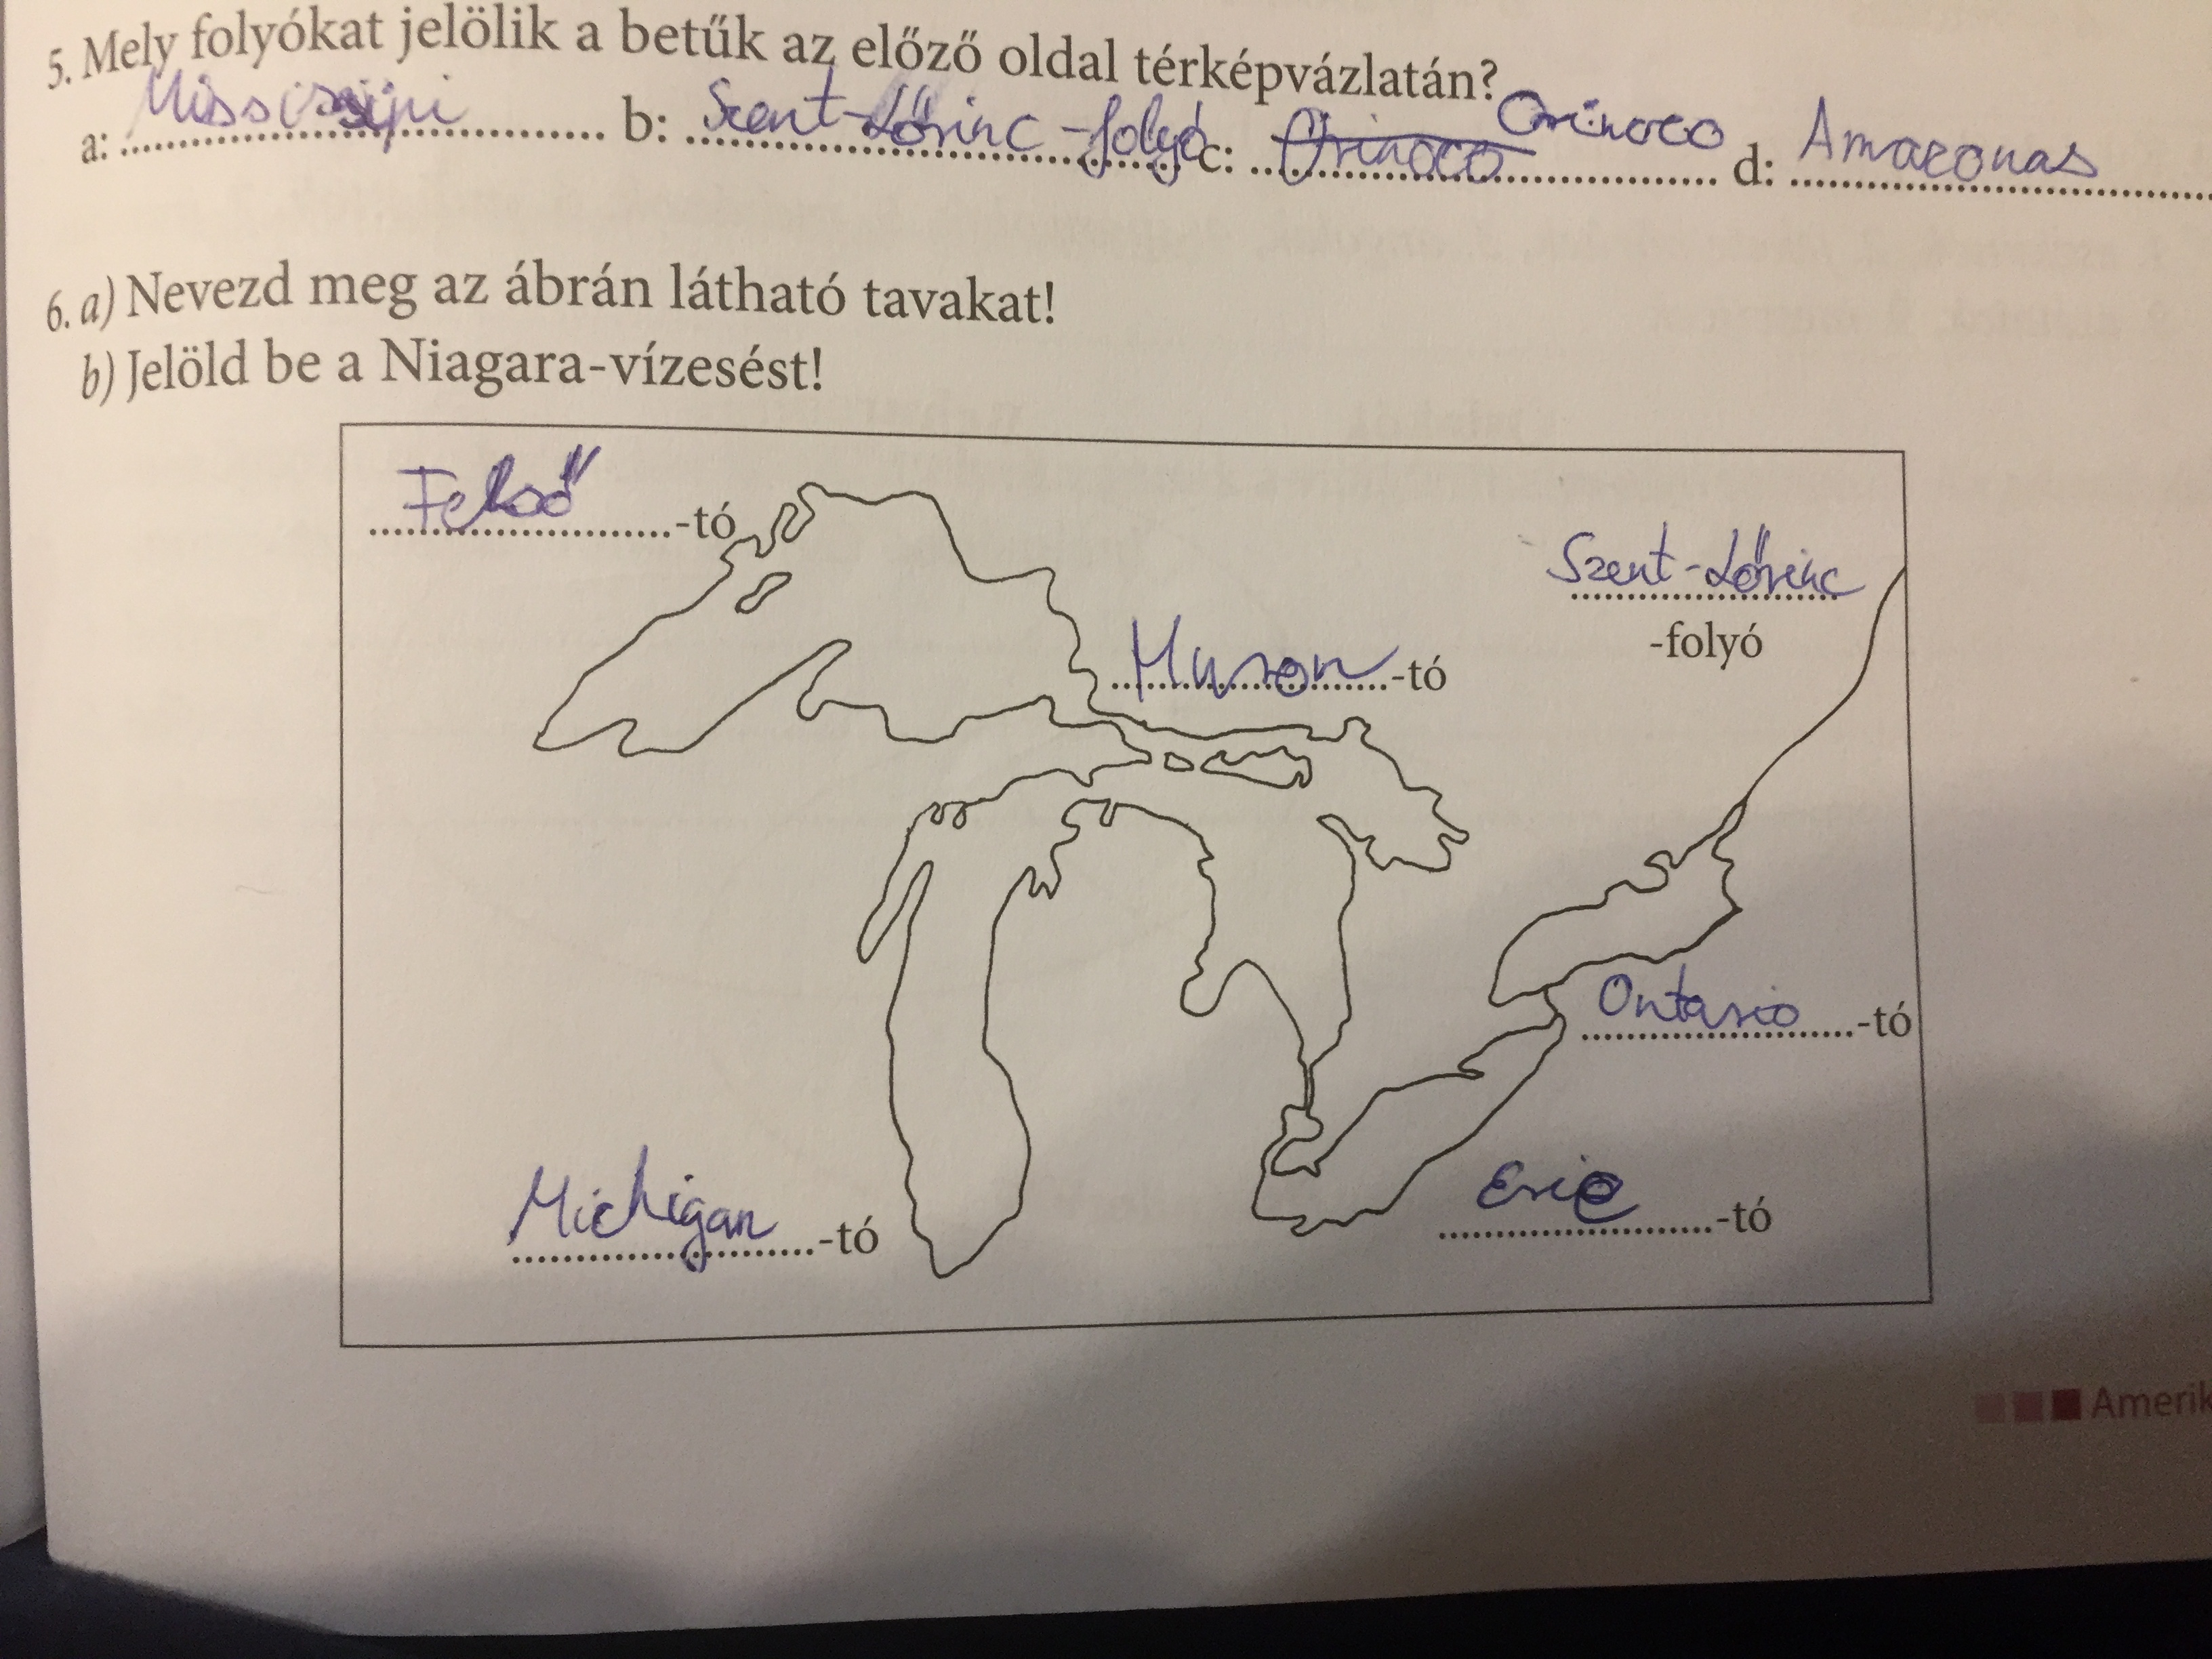 5. Mely folyókat jelölik a betűk az előző oldal térképvázlatán?
a: Mississipi b: Szent-Lőrinc-folyó c: Orinoco Orinoco d: Amazonas
6. a) Nevezd meg az ábrán látható tavakat!
b) Jelöld be a Niagara-vízesést!
Felső-tó
Szent-Lőrinc
-folyó
Huron-tó
Ontario-tó
Michigan-tó
Erie-tó
Amerik